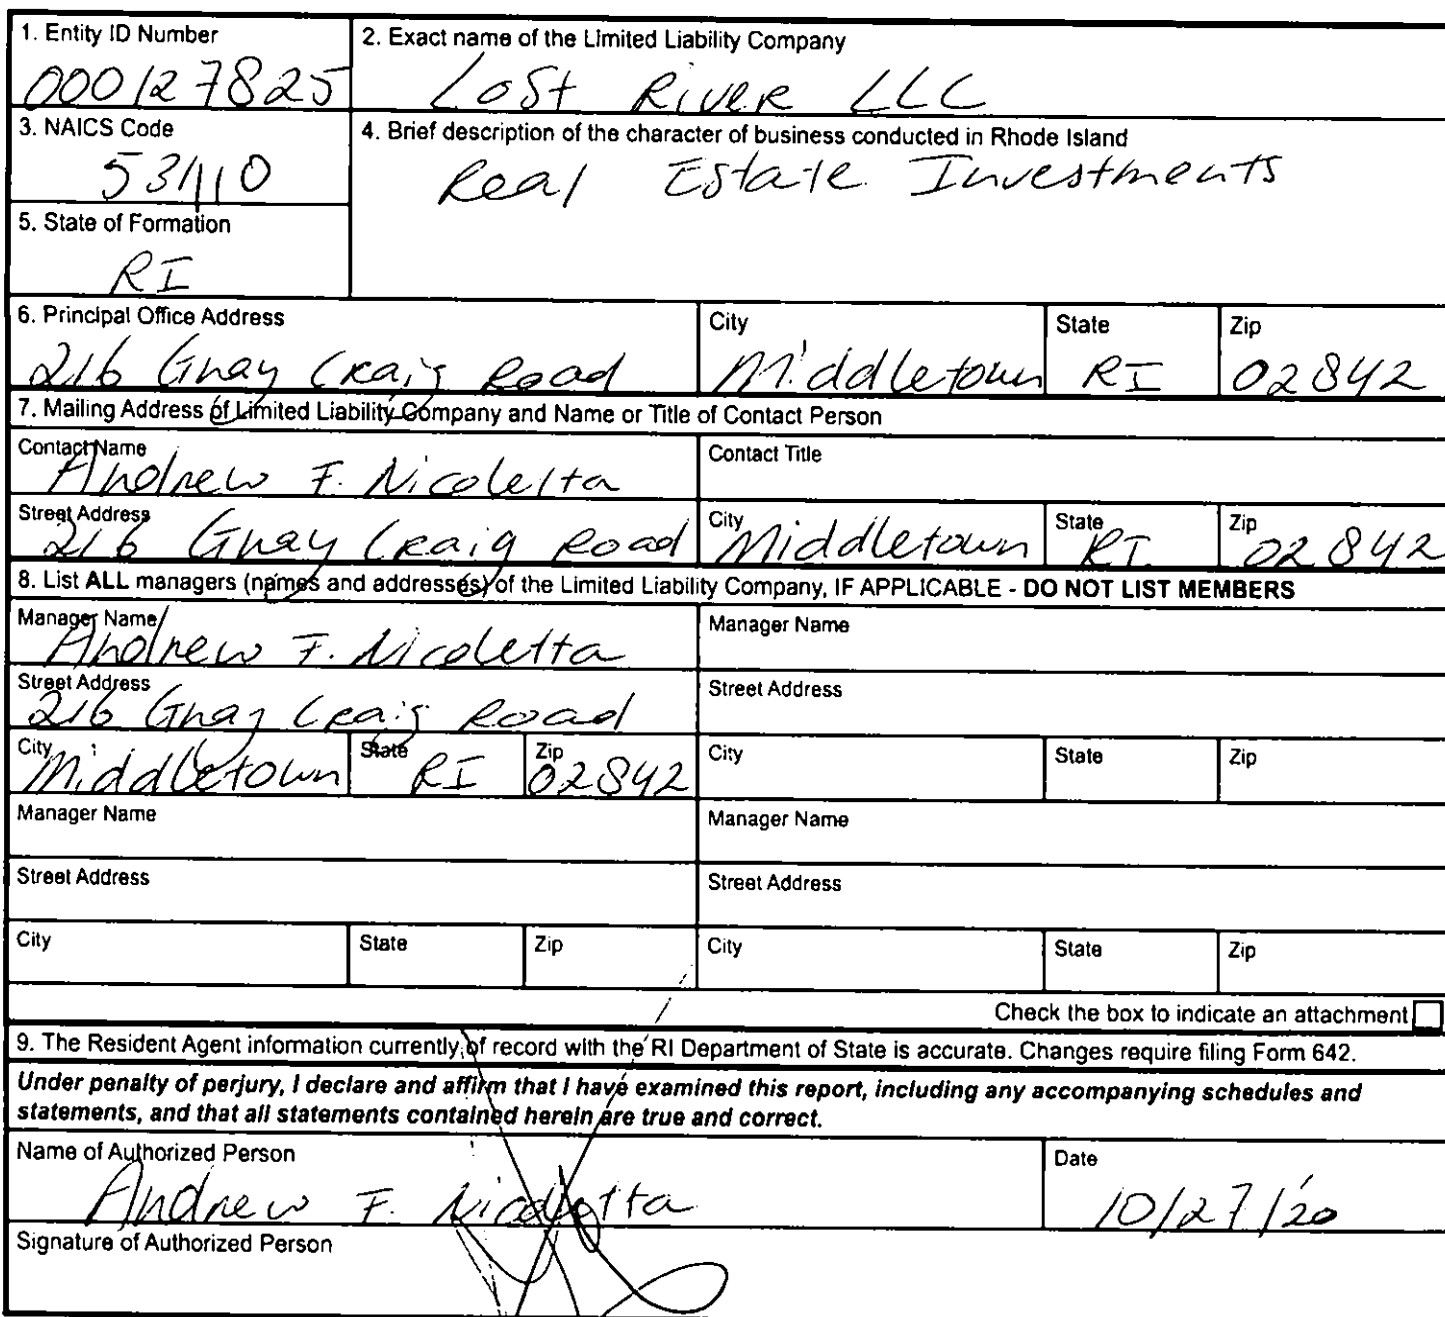 1. Entity ID Number
000127825
2. Exact name of the Limited Liability Company
Lost River LLC
3. NAICS Code
531110
4. Brief description of the character of business conducted in Rhode Island
Real Estate Investments
5. State of Formation
RI
6. Principal Office Address City State Zip
216 Gray Craig Road Middletown RI 02842
7. Mailing Address of Limited Liability Company and Name or Title of Contact Person
Contact Name Contact Title
Andrew F. Nicoletta
Street Address City State Zip
216 Gray Craig Road Middletown RI 02842
8. List ALL managers (names and addresses) of the Limited Liability Company, IF APPLICABLE - DO NOT LIST MEMBERS
Manager Name Manager Name
Andrew F. Nicoletta
Street Address Street Address
216 Gray Craig Road
City State Zip City State Zip
Middletown RI 02842
Manager Name Manager Name
Street Address Street Address
City State Zip City State Zip
Check the box to indicate an attachment
9. The Resident Agent information currently of record with the RI Department of State is accurate. Changes require filing Form 642.
Under penalty of perjury, I declare and affirm that I have examined this report, including any accompanying schedules and
statements, and that all statements contained herein are true and correct.
Name of Authorized Person Date
Andrew F. Nicoletta 10/27/20
Signature of Authorized Person